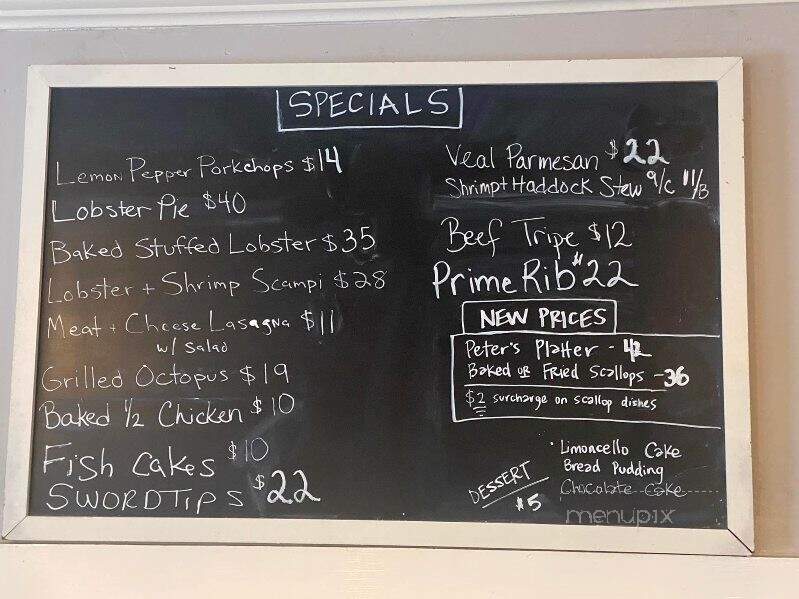 SPECIALS
Lemon Pepper Porkchops $14
Lobster Pie $40
Baked Stuffed Lobster $35
Lobster + Shrimp Scampi $28
Meat + Cheese Lasagna $11
w/ Salad
Grilled Octopus $19
Baked 1/2 Chicken $10
Fish Cakes $10
SWORDTIPS $22
Veal Parmesan $22
Shrimp + Haddock Stew 9/C 11/B
Beef Tripe $12
Prime Rib $22
NEW PRICES
Peter's Platter - 42
Baked or Fried Scallops - 36
$2 surcharge on scallop dishes
DESSERT $5
· Limoncello Cake
Bread Pudding
Chocolate Cake
menupix